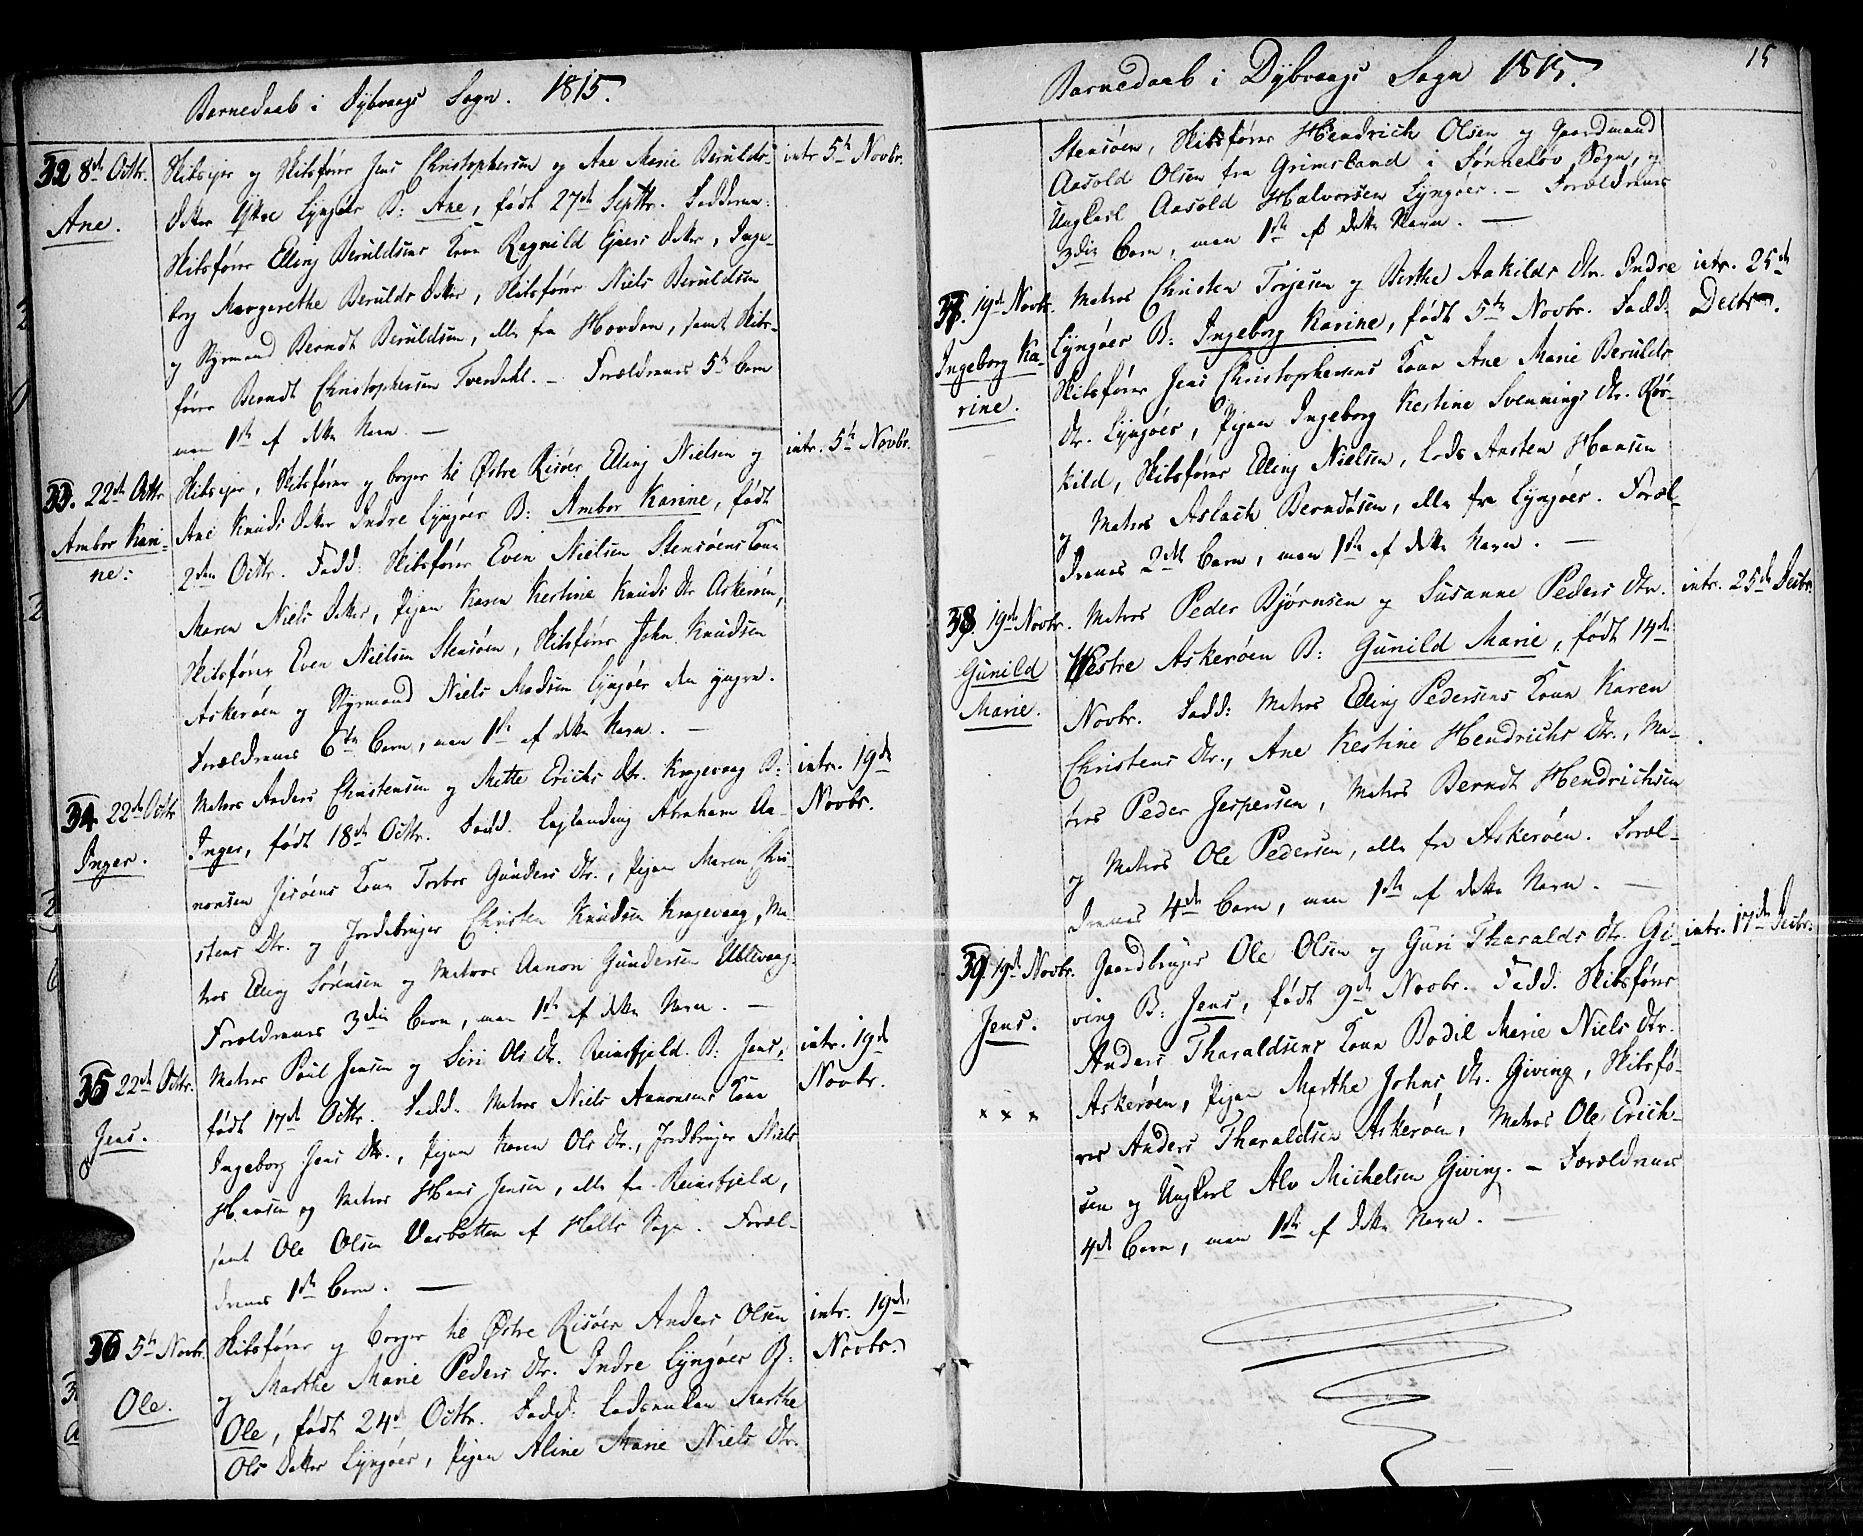 Barnedaab i Dybvaags Sogn. 1815.
32 8de Octbr. Skibsejer og Skibsfører Jens Christophersen og Ane Marie Berulds- intr. 5te Novbr.
Ane.
Datter Ytre Lyngøer B: Ane, født 27de Septbr. Fadderne:
Skibsfører Elling Beruldsens Kone Ragnild Ejers Datter, Inge-
borg Margrethe Berulds Datter, Skibsfører Niels Beruldsen
og Styrmand Berndt Beruldsen, alle fra Hovden, samt Skibs-
fører Berndt Christophersen Tverdahl. – Forældrenes 5te Barn
men 1ste af dette Navn. –
33. 22de Octbr. Skibsejer, Skibsfører og borger til Østre Risøer Elling Nielsen og intr. 5te Novbr.
Ambor Kari-
ne:
Ane Knuds Datter Indre Lyngøer B: Ambor Karine, født
2den Octbr. Fadd: Skibsfører Even Nielsen Stensøens Kone
Maren Niels Datter, Pigen Karen Kestine Knuds Dtr Askerøen,
Skibsfører Even Nielsen Stensøen, Skibsfører John Knudsen
Askerøen og Styrmand Niels Madsen Lyngøer den yngre.
Forældrenes 6te Barn, men 1ste af dette Navn. –
34 22de Octbr Matros Anders Christensen og Mette Erichs Dtr. Kragevaag B: intr. 19de
Novbr.
Inger.
Inger, født 18de Octbr. Fadd. Abraham Aa-
nonsen Jesøens Kone Torbor Gunders Dtr., Pigen Maren Chri-
stens Dtr. og Jordbruger Christen Knudsen Kragevaag, Ma-
tros Elling Sørensen og Matros Aanon Gundersen Ublevaag.
Forældrenes 3die Barn, men 1ste af dette Navn. –
35 22de Octbr. Matros Poul Jensen og Siri Ols Dtr. Reinsfjeld. B: Jens, intr. 19de
Novbr.
Jens.
født 17de Octbr. Fadd. Matros Niels Aanonsens Kone
Ingeborg Jens Dtr., Pigen Karen Ols Dtr., Jordbruger Niels
Hansen og Matros Hans Jensen, alle fra Reinsfjeld,
samt Ole Olsen Vasbotten af Holts Sogn. Foræl-
drenes 1ste Barn. –
36 5te Novbr. Skibsfører og borger til Østre Risøer Anders Olsen intr. 19de
Novbr.
Ole.
og Marthe Marie Peders Dtr. Indre Lyngøer B:
Ole, født 24de Octbr. Fadd. Marthe
Ols Datter Lyngøer, Pigen Aline Marie Niels Dtr.
15
Barnedaab i Dybvaags Sogn 1815.
Stensøen, Skibsfører Hendrich Olsen og Gaardmand
Aasold Olsen fra Grimsland i Sønneløv Sogn, og
Ungkarl Aasold Halvorsen Lyngøer. – Forældrenes
3die Barn, men 1ste af dette Navn. –
37. 19de Novbr. Matros Christen Torjesen og Berthe Aakilds Dtr. Indre intr. 25de
Decbr.
Ingeborg Ka-
rine.
Lyngøer B: Ingeborg Karine, født 5te Novbr. Fadd:
Skibsfører Jens Christophersens Kone Ane Marie Berulds
Dtr. Lyngøer, Pigen Ingeborg Kestine Svennings Dtr. Rør-
kild, Skibsfører Elling Nielsen, Lods Ansten Hansen
og Matros Aslach Berndtsen, alle fra Lyngøer. Foræl-
drenes 2det Barn, men 1ste af dette Navn. –
38. 19de Novbr. Matros Peder Bjørnsen og Susanne Peders Dtr. intr. 25de Decbr.
Gunild
Marie.
Westre Askerøen B: Gunild Marie, født 14de
Novbr. Fadd: Matros Elling Pedersens Kone Karen
Christens Dtr., Ane Kestine Hendrichs Dtr., Ma-
tros Peder Jespersen, Matros Berndt Hendrichsen
og Matros Ole Pedersen, alle fra Askerøen. Foræl-
drenes 4de Barn, men 1ste af dette Navn. –
39. 19de Novbr. Gaardbruger Ole Olsen og Guri Tharalds Dtr. Gi- intr. 17de Decbr.
Jens.
x x x
ving B: Jens, født 9de Novbr. Fadd. Skibsfører
Anders Tharaldsens Kone Bodil Marie Niels Dtr.
Askerøen, Pigen Marthe Johns Dtr. Giving, Skibsfø-
rer Anders Tharaldsen Askerøen, Matros Ole Erich-
sen og Ungkarl Alv Michelsen Giving. – Forældrenes
4de Barn, men 1ste af dette Navn. –